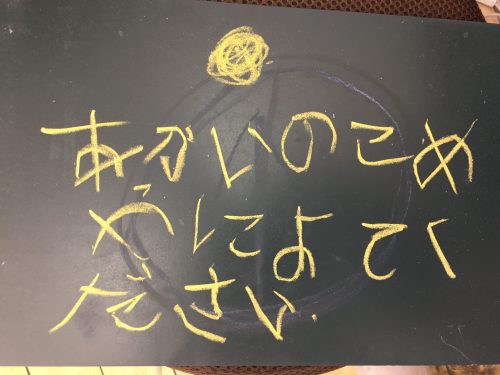 あかいのこめ
やによてく
ださい